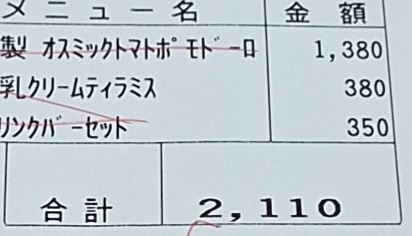 メニュー名 金額
製 オスミックトマトポモドーロ 1,380
乳クリームティラミス 380
リンクバーセット 350
合計 2,110